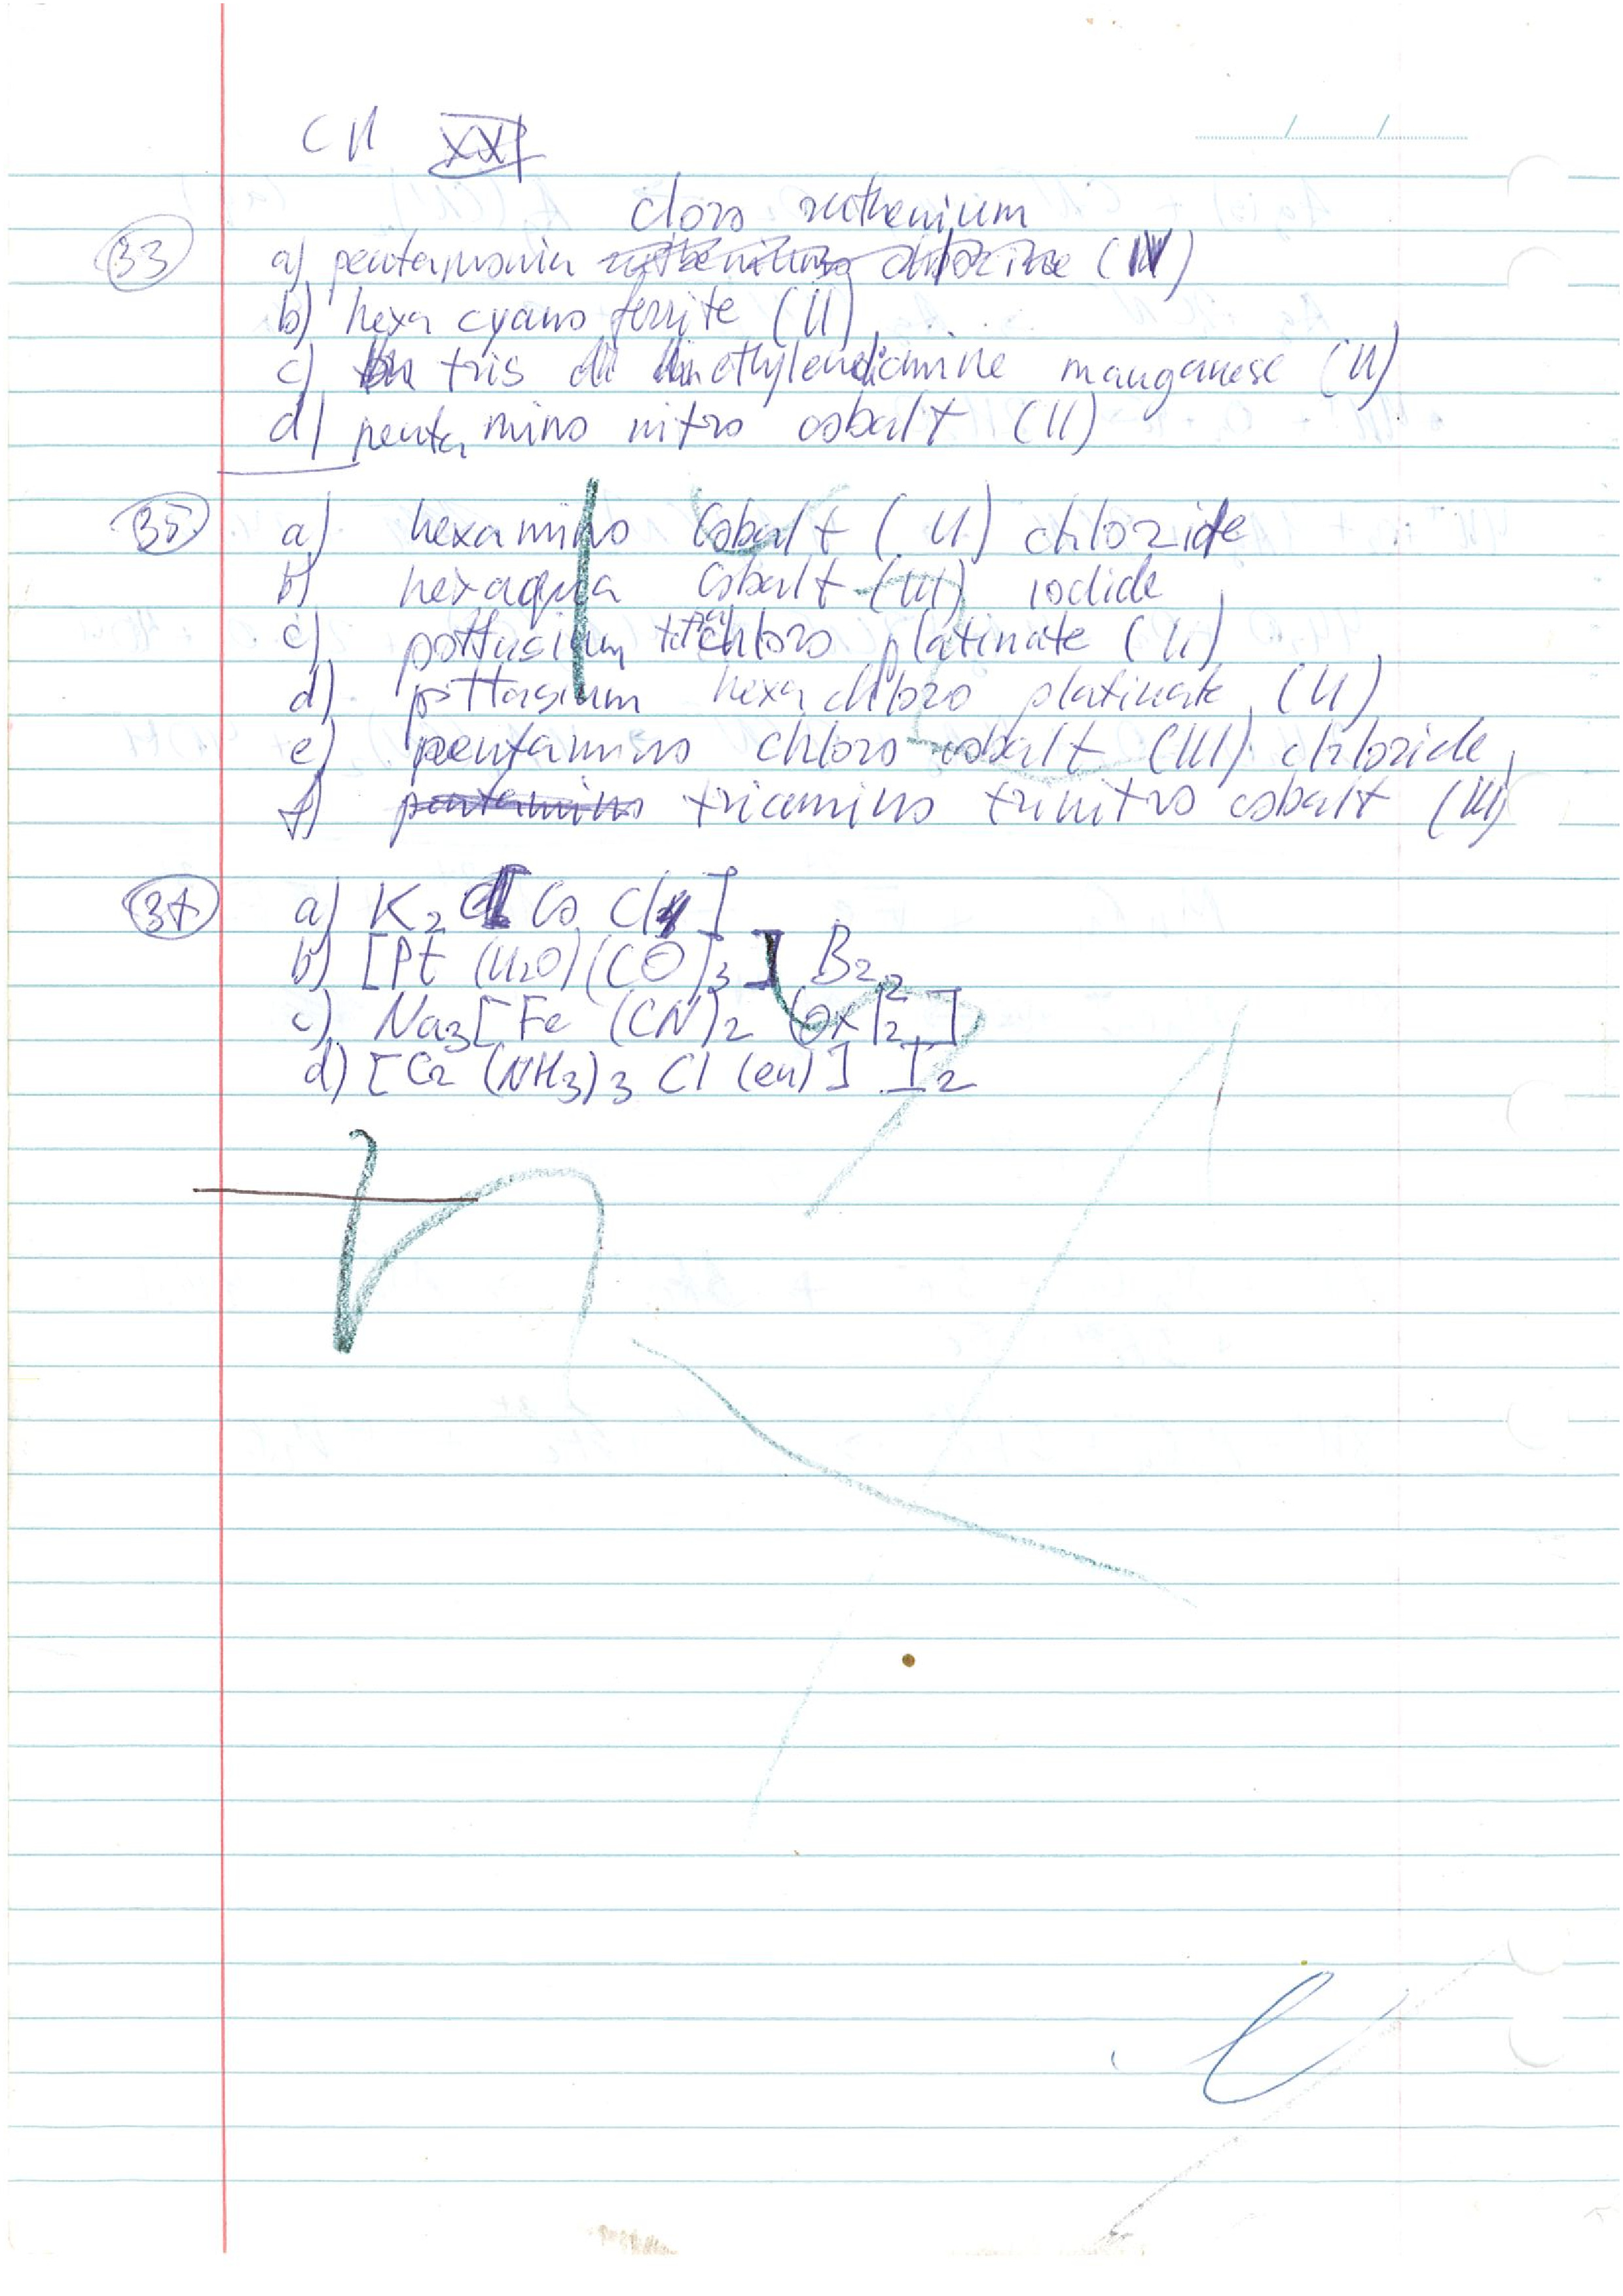 CH XXI
cloro ruthenium
33 a) pentamonia ruthenium chlorine (IV)
b) hexa cyano ferrite (II)
c) tris di ethylendiamine manganese (II)
d) penta mino nitro cobalt (II)
35 a) hexamino cobalt (II) chloride
b) hexaqua cobalt (III) iodide
c) pottasium tetrachloro platinate (II)
d) pottasium hexa chloro platinate (II)
e) pentamino chloro cobalt (III) chloride
f) pentamino triamino trinitro cobalt (III)
37 a) K2 [Co Cl4]
b) [Pt (H2O)(CO)3] Br2
c) Na3[Fe (CN)2 (Ox)2]
d) [Cr (NH3)3 Cl (en)] I2